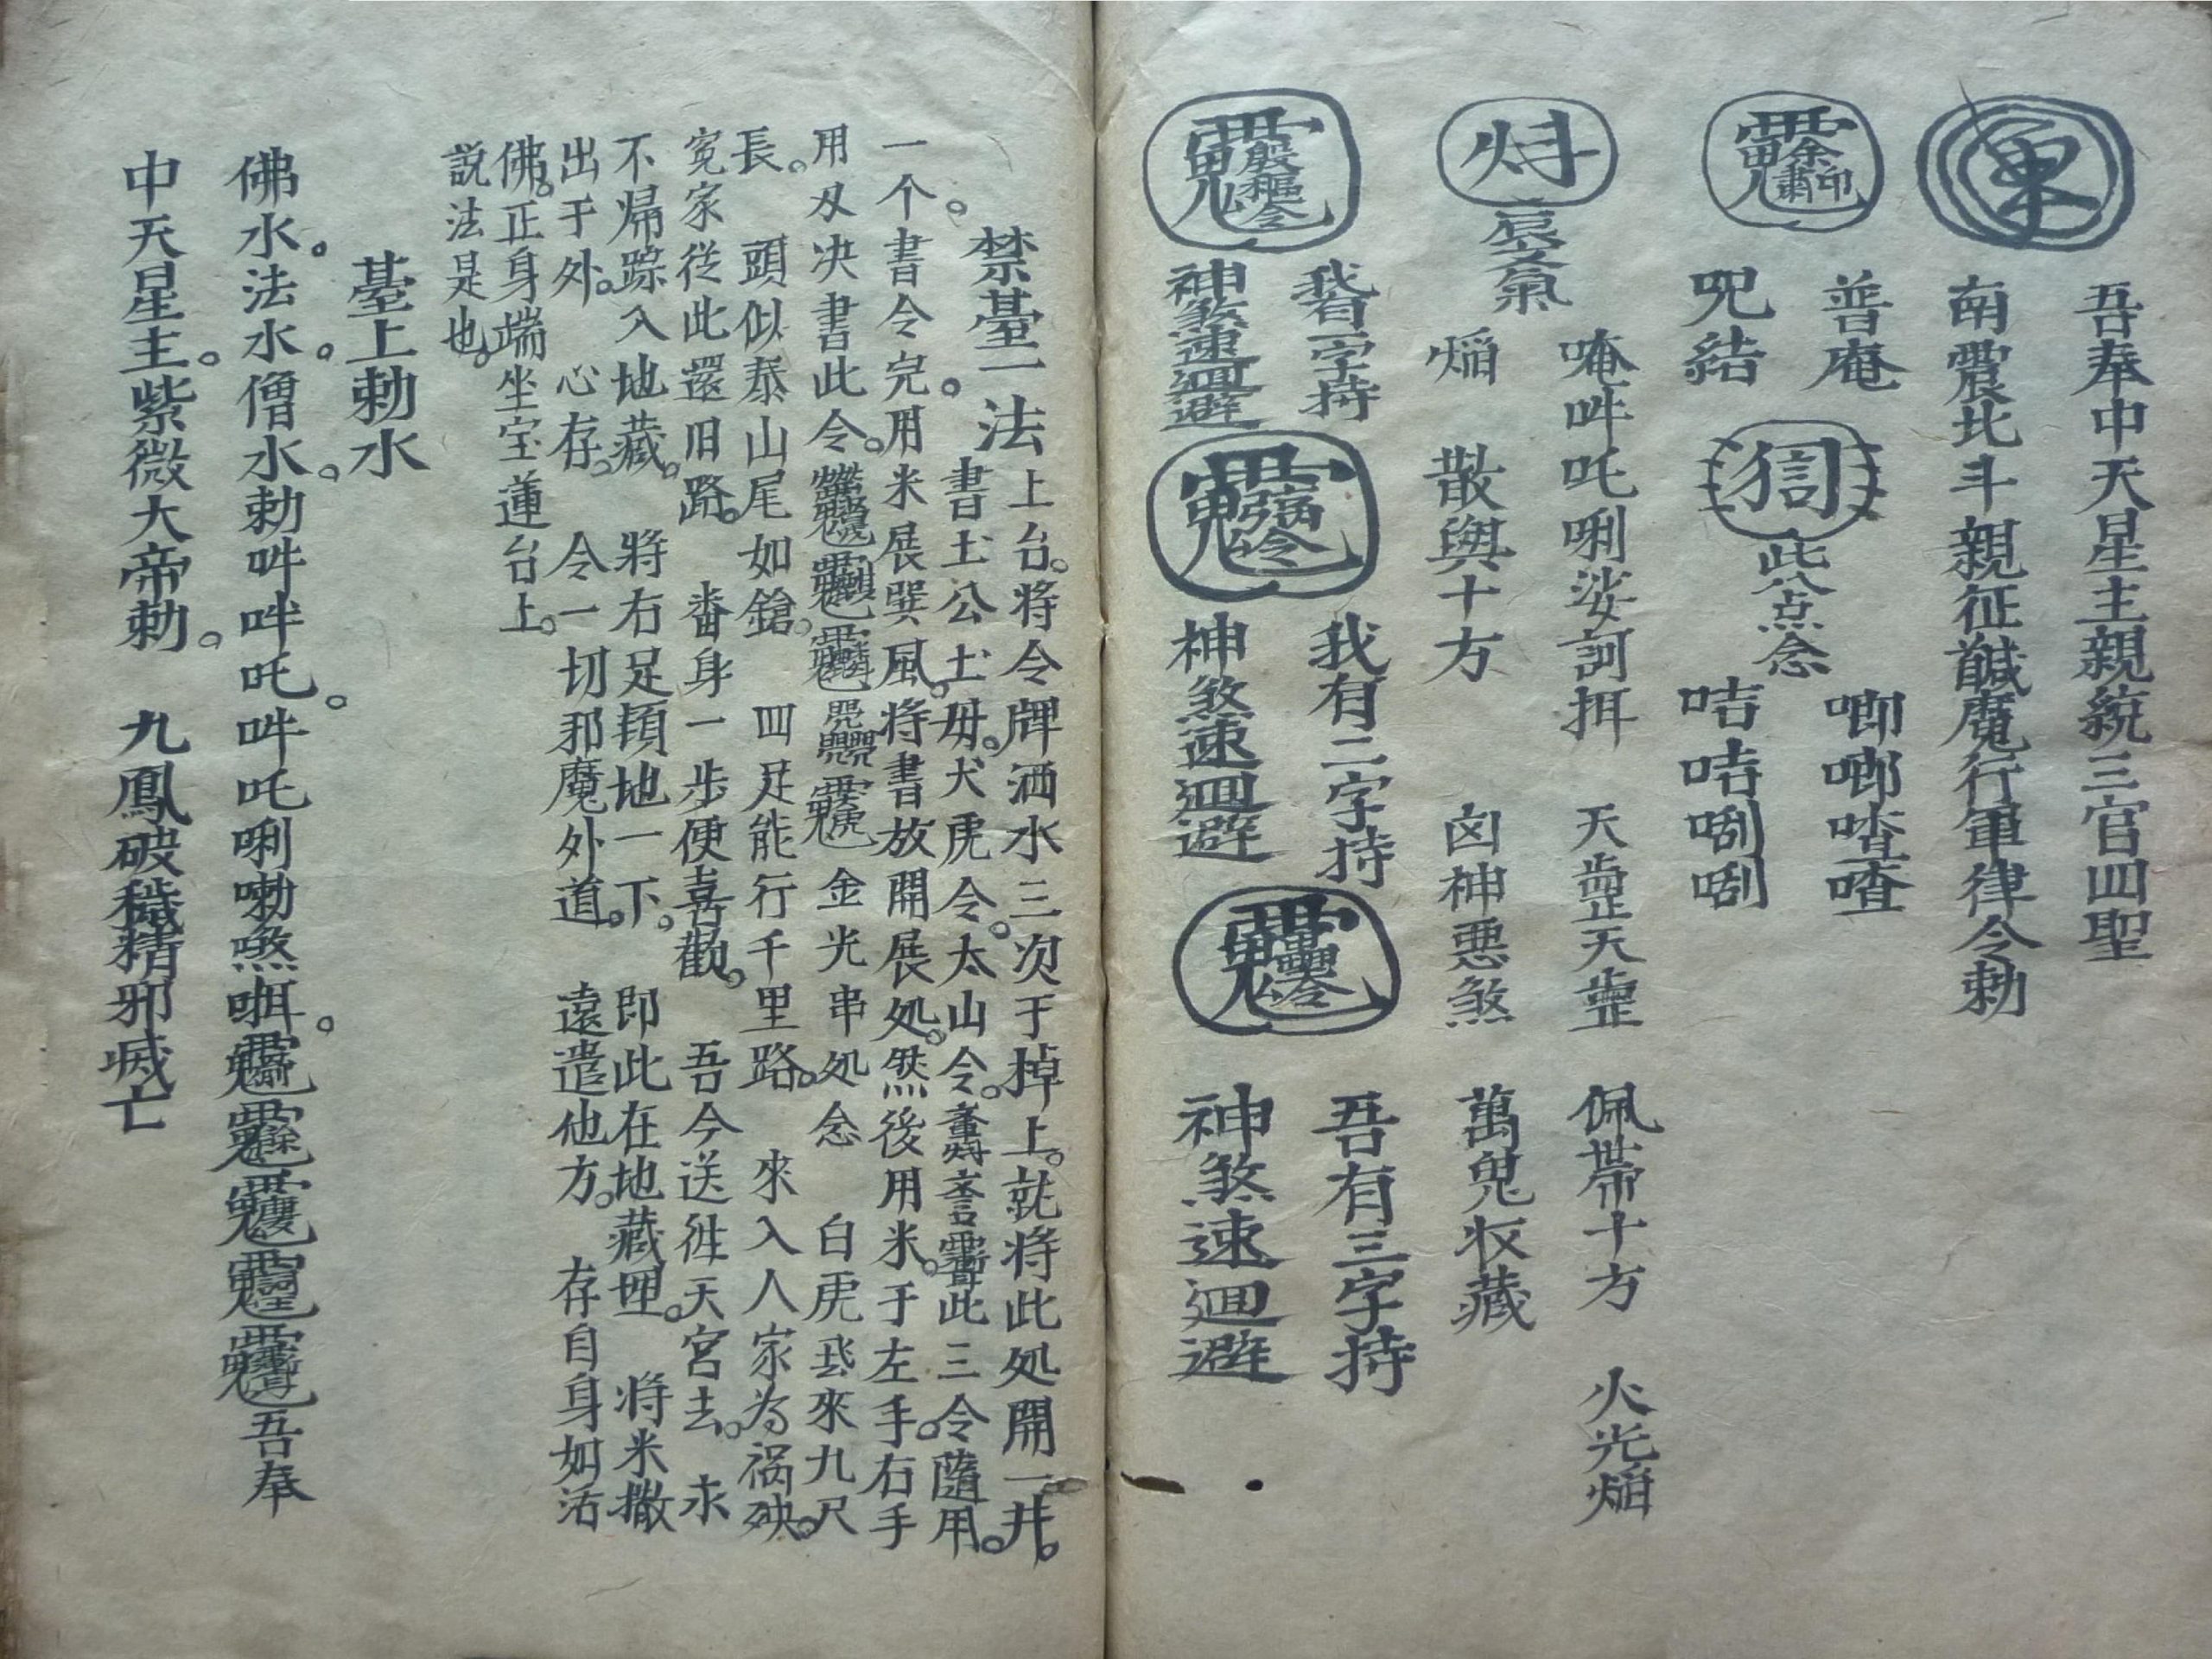 吾奉中天星主親統三官四聖
南震北斗親征馘魔行軍律令勅
普庵
呪結
此八点念
唧唧喳喳
咭咭唎唎
唵吽吒唎娑訶挕
天 天
佩帶十方
火光焰
焰
散與十方
凶神惡煞
萬鬼收藏
我有一字持
神煞速迴避
我有二字持
神煞速迴避
吾有三字持
神煞速迴避
禁臺一法上台。将令牌洒水三次于掉上。就将此处開一井。
書土公土母。犬虎令。太山令。此三令。隨用。
一个。書令完。用米展巽風。将書放開展処。然後用米。于左手。右手
用 决書此令。金光串処念 白虎 來九尺
長。 頭似泰山尾如鎗。 四足能行千里路。 來入人家為禍殃。
冤家從此還旧路。 番身一步便喜歡。 吾今送徃天宮去。 永
不帰踪入地藏。 將右足頓地一下。 即此在地藏埋。 将米撒
出于外。 心存。 令一切邪魔外道。 遠遣他方。 存自身如活
佛。正身端坐宝蓮台上。
説法是也。
臺上勅水
佛水。法水。僧水。勅吽吽吒。吽吒唎 煞 。 吾奉
中天星主。紫微大帝勅。 九鳳破穢精邪滅亡